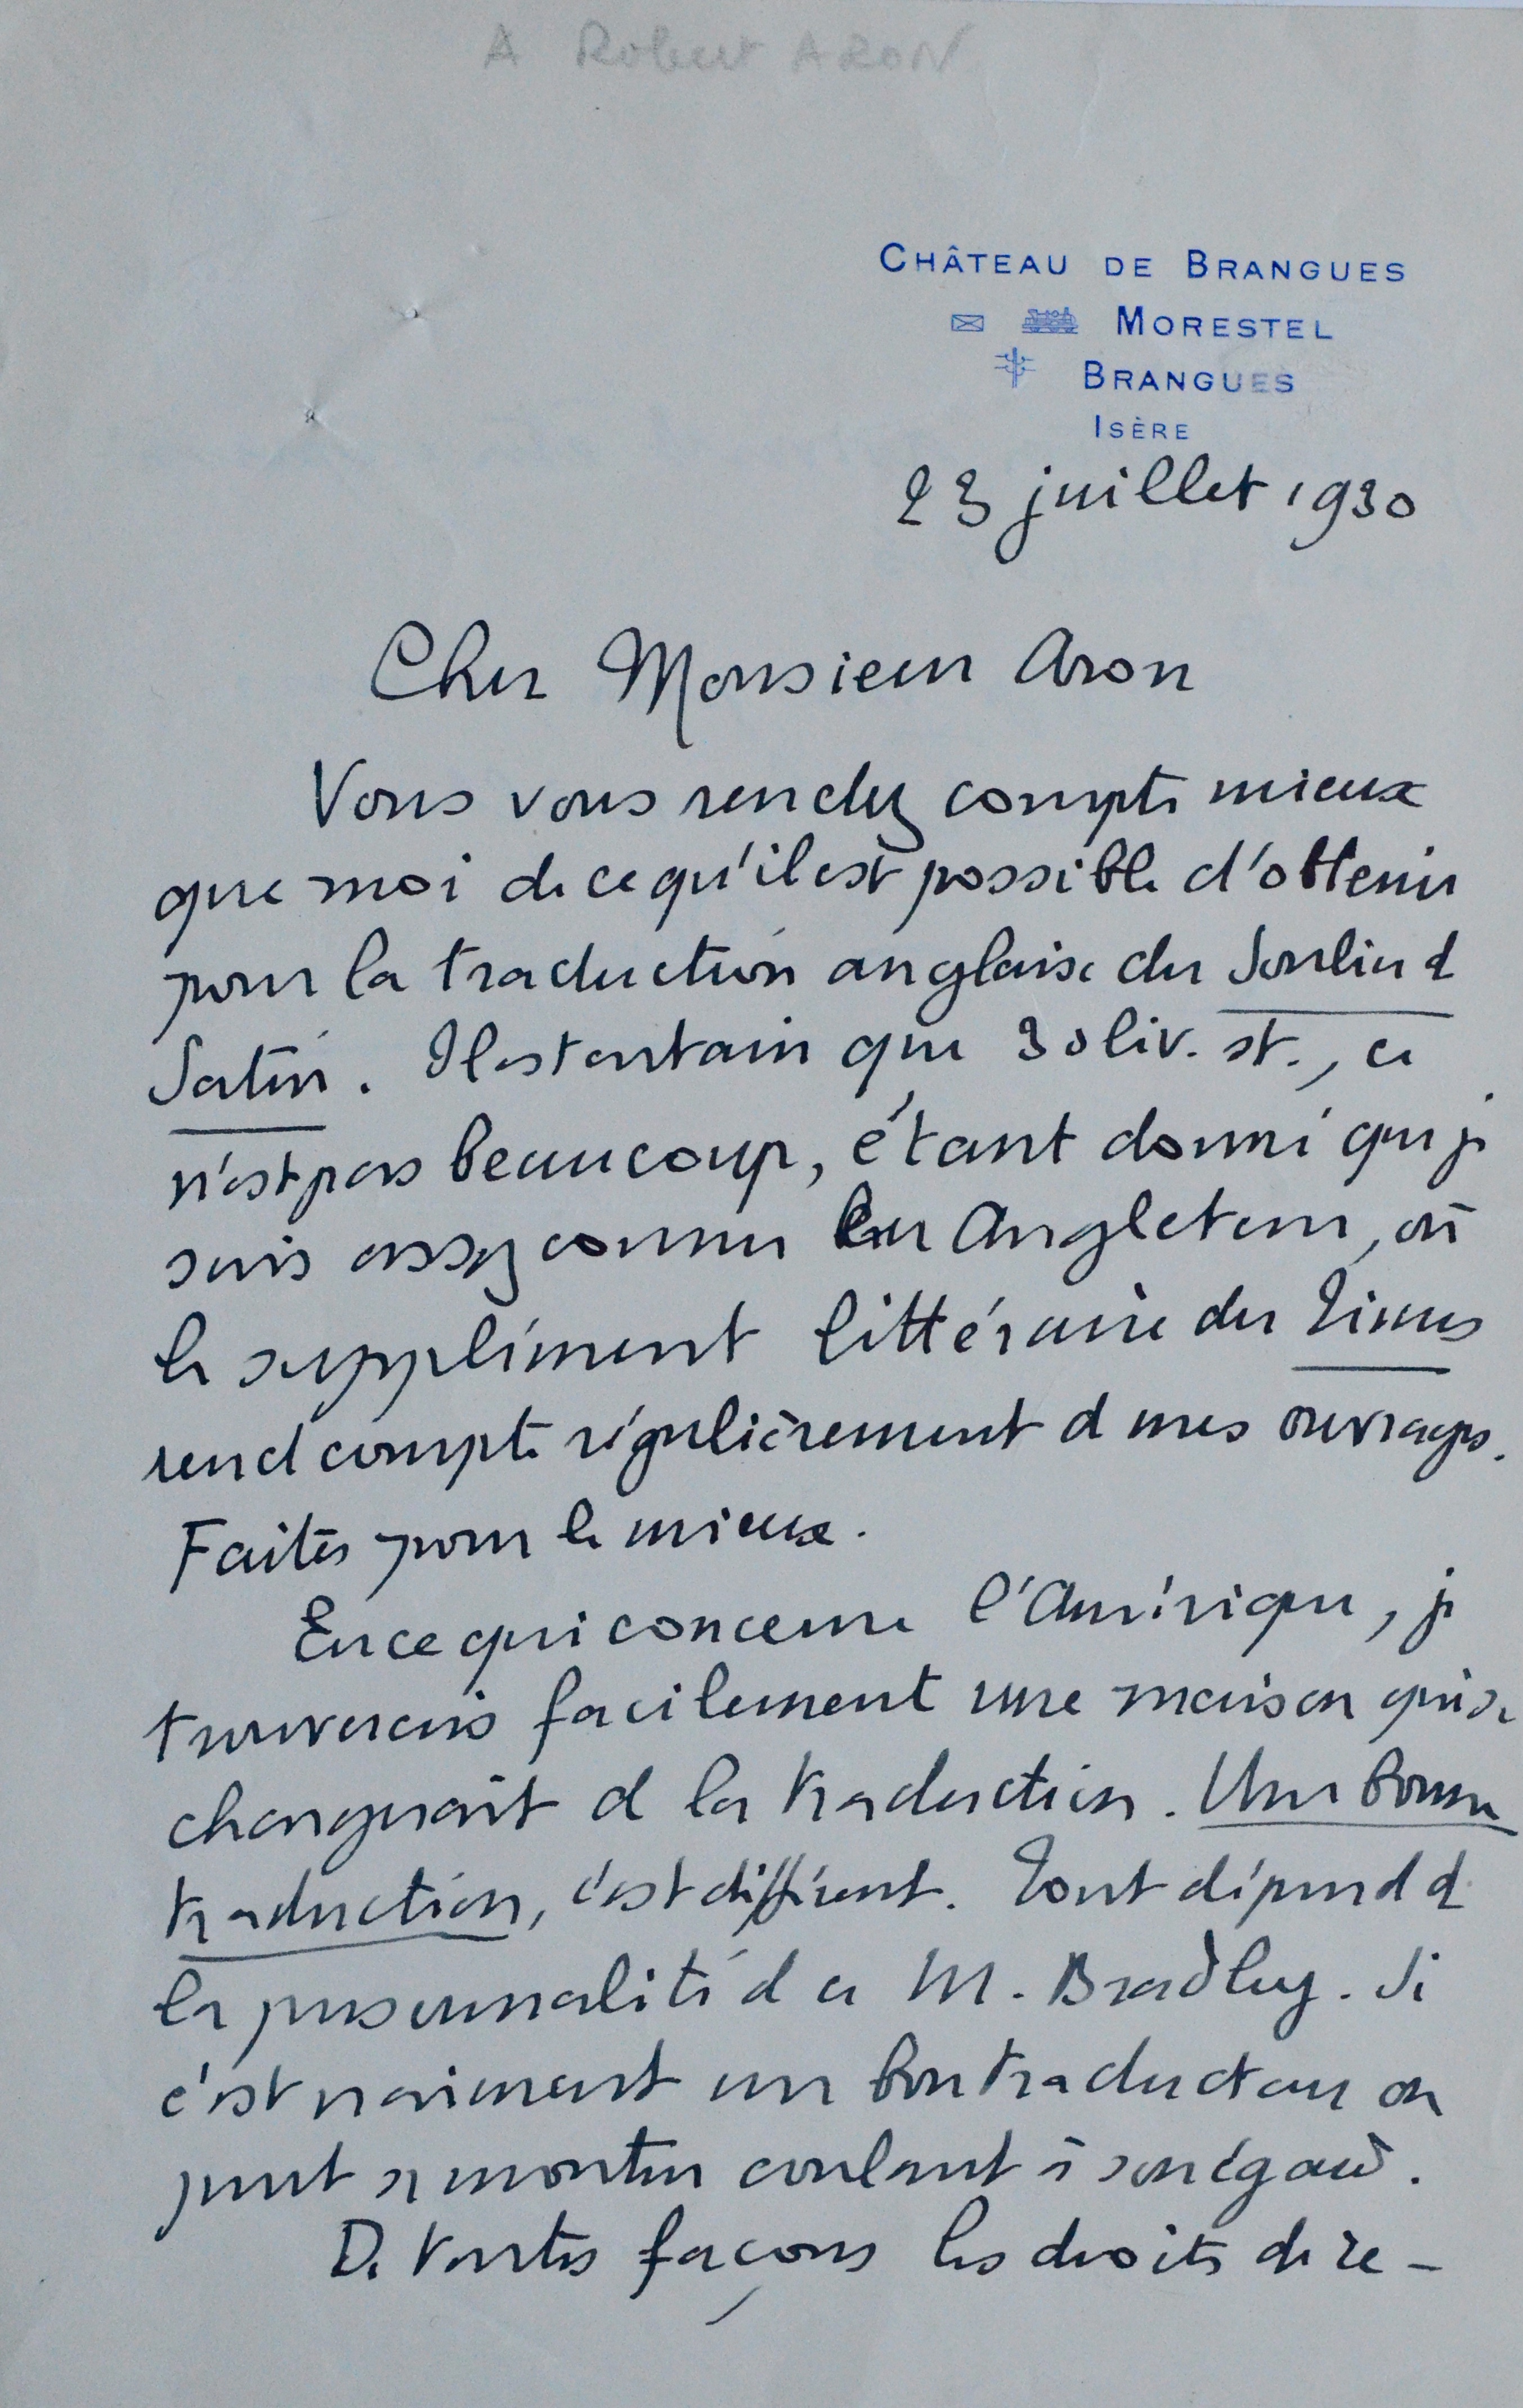 A Robert ARON
CHÂTEAU DE BRANGUES
MORESTEL
BRANGUES
ISÈRE
23 juillet 1930
Cher Monsieur Aron
Vous vous rendez compte mieux
que moi de ce qu'il est possible d'obtenir
pour la traduction anglaise du Soulier de
Satin. Il est certain que 30 liv. st., ce
n'est pas beaucoup, étant donné que je
suis assez connu en Angleterre, où
le supplément littéraire du Times
rend compte régulièrement de mes ouvrages.
Faites pour le mieux.
En ce qui concerne l'Amérique, je
trouverais facilement une maison qui se
chargerait de la traduction. Une bonne
traduction, c'est différent. Tout dépend de
la personnalité de ce M. Bradley. Si
c'est vraiment un bon traducteur on
peut se montrer coulant à son égard.
De toutes façons les droits de re-